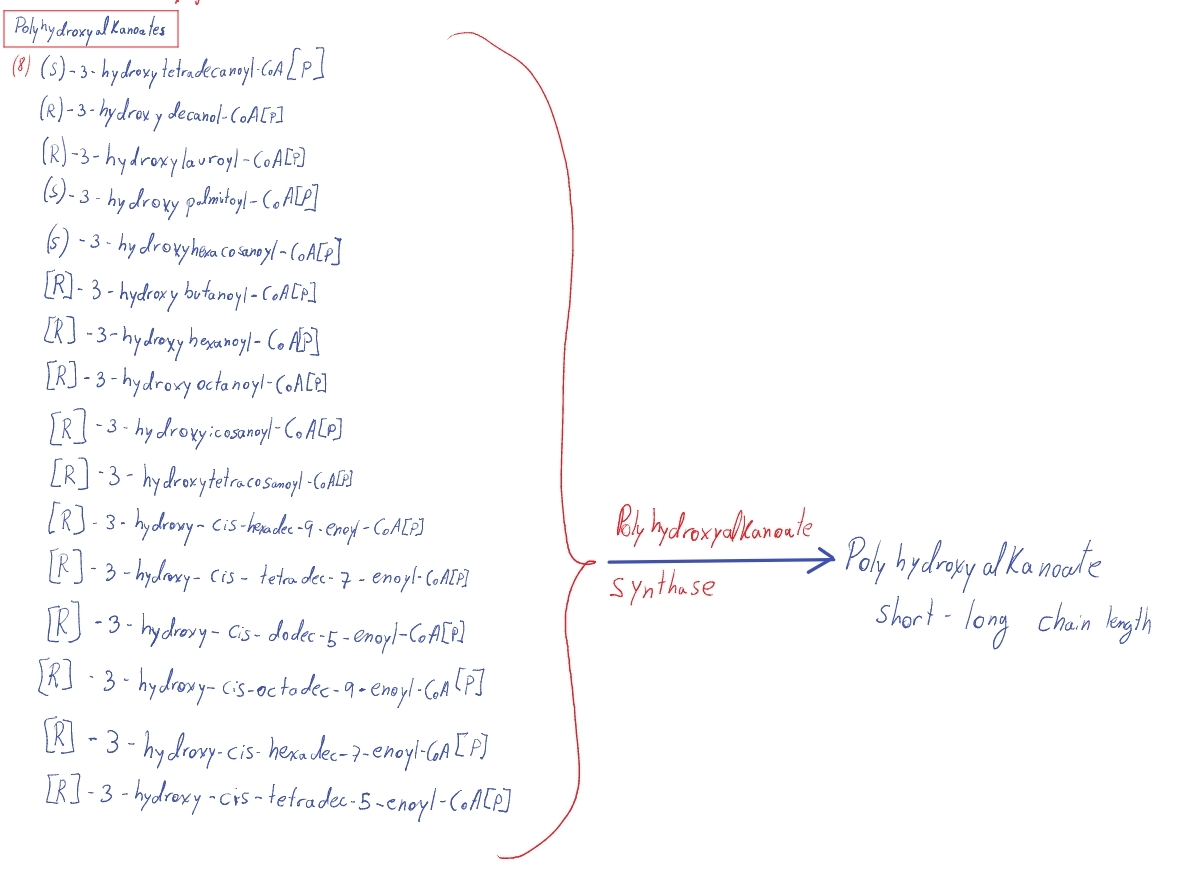 Polyhydroxyalkanoates
(8) (S)-3-hydroxytetradecanoyl-CoA[P]
(R)-3-hydroxydecanol-CoA[P]
(R)-3-hydroxylauroyl-CoA[P]
(S)-3-hydroxypalmitoyl-CoA[P]
(S)-3-hydroxyhexacosanoyl-CoA[P]
[R]-3-hydroxybutanoyl-CoA[P]
[R]-3-hydroxyhexanoyl-CoA[P]
[R]-3-hydroxyoctanoyl-CoA[P]
[R]-3-hydroxyicosanoyl-CoA[P]
[R]-3-hydroxytetracosanoyl-CoA[P]
[R]-3-hydroxy-cis-hexadec-9-enoyl-CoA[P]
[R]-3-hydroxy-cis-tetradec-7-enoyl-CoA[P]
[R]-3-hydroxy-cis-dodec-5-enoyl-CoA[P]
[R]-3-hydroxy-cis-octadec-9-enoyl-CoA[P]
[R]-3-hydroxy-cis-hexadec-7-enoyl-CoA[P]
[R]-3-hydroxy-cis-tetradec-5-enoyl-CoA[P]
Polyhydroxyalkanoate
synthase
Polyhydroxyalkanoate
short-long chain length